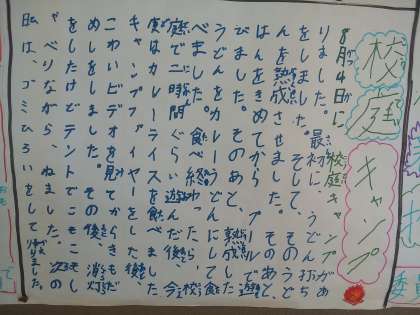 校庭キャンプ
8月4日に校庭キャンプがあ
りました。最初に、うどん打ち
をしました。そして、そのうど
んを熟成させました。そのあと、
はんを がら、プールで遊
びました。そのあと、熟成した
うどんをカレーうどんにして食
べました。食べ終わったら、校
庭で二時間ぐらい遊んだ後、今
度はカレーライスを食べました。
キャンプファイヤーをした後、
こわいビデオを見てからきもだ
めしをしました。その後、消灯
をしたけどテントでこもこもし
ゃべりながら、ねました。次の
私は、ゴミひろいをして帰りました。
委員